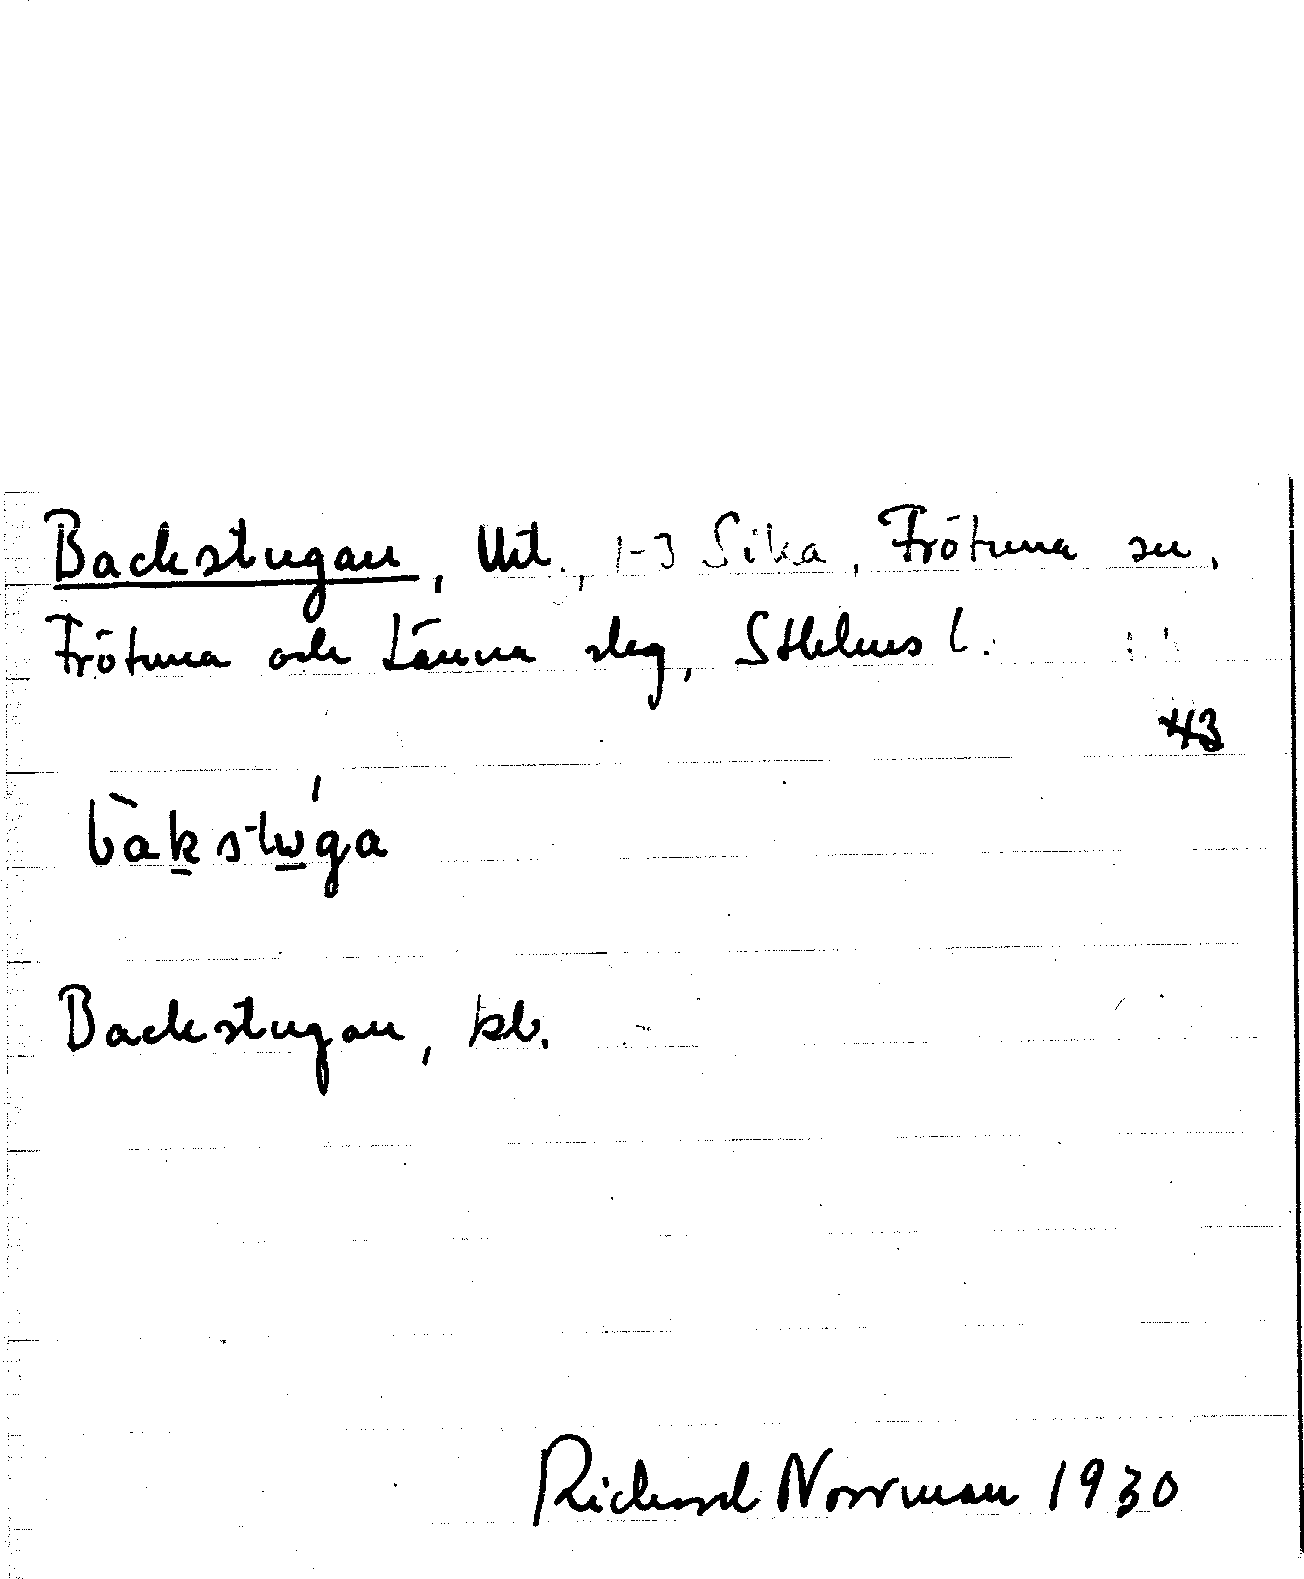 Backstugan, Utl., 1-3 Sika, Frötuna sn,
Frötuna och Länna slg, Sthlms l.
43
bàkstw̱ga
Backstugan, kb.
Richard Norrman 1930